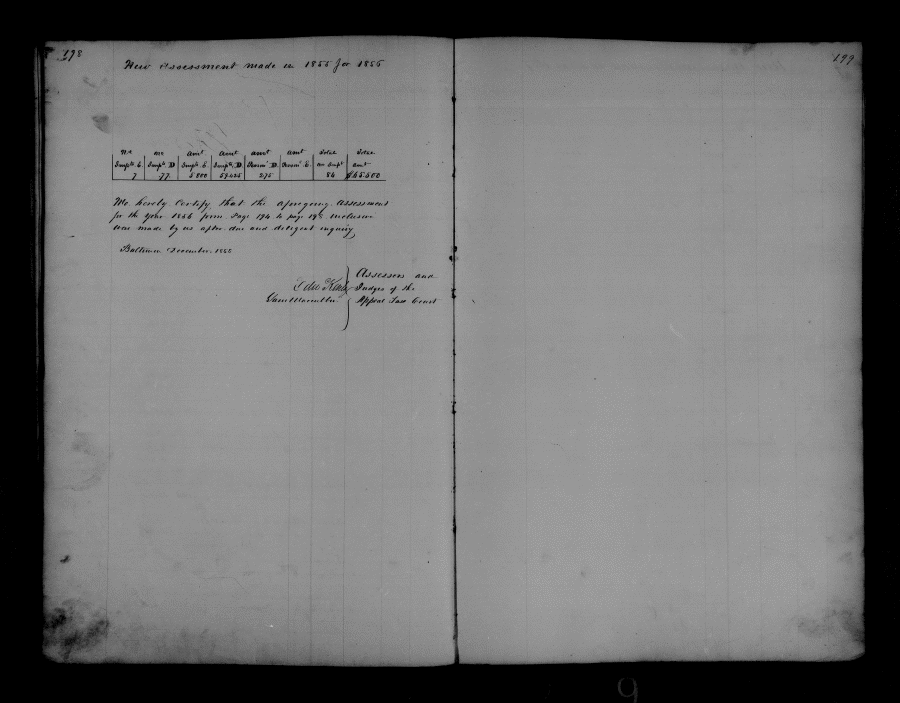 198
199
New Assessment made in 1855 for 1856
No. no amt amt amt amt Total Total
Impts C. Impts D Impts C. Impts D. D. C. on Impt amt
7 77 5800 59.425 275 84 $65.500
We hereby Certify that the afregoing Assessment
for the Year 1856 from Page 194 to page 198 inclusive
was made by us after due and diligent inquiry
Baltimore December 1855
Assessors and
Judges of the
Appeal Tax Court
9